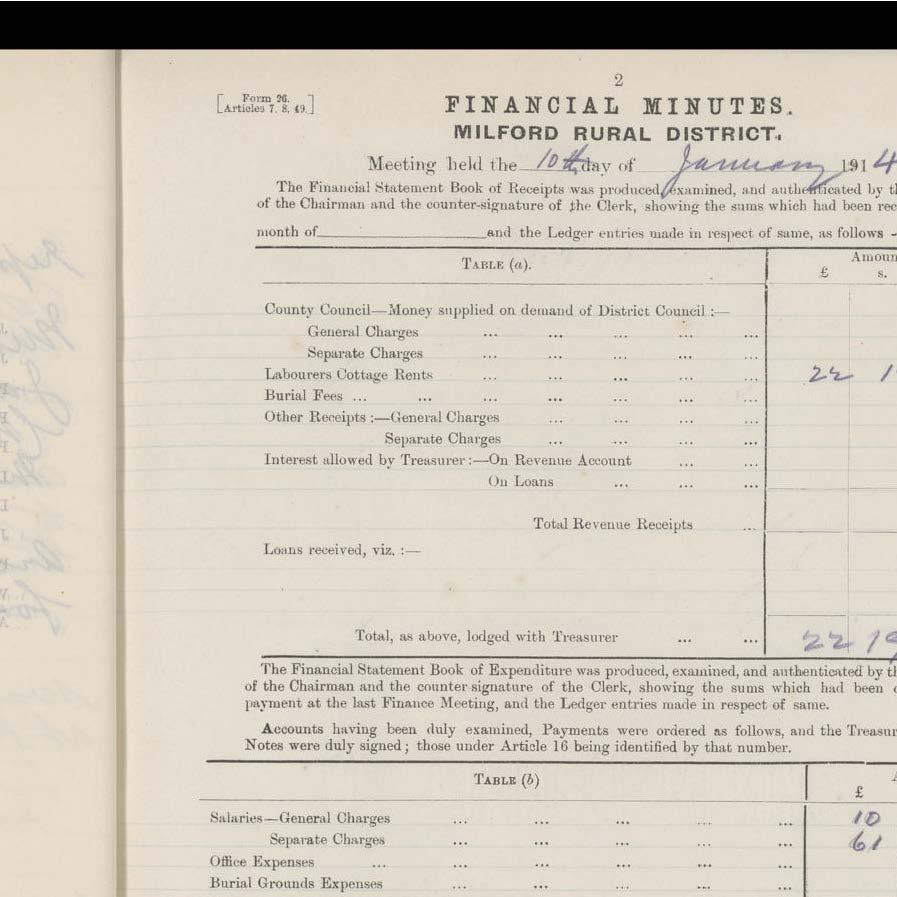 2
Form 26.
[Articles 7. 8. 49.]
FINANCIAL MINUTES.
MILFORD RURAL DISTRICT.
Meeting held the 10th day of January 1914
The Financial Statement Book of Receipts was produced, examined, and authenticated by
of the Chairman and the counter-signature of the Clerk, showing the sums which had been
month of and the Ledger entries made in respect of same, as follows -
TABLE (a).
£ s.
County Council—Money supplied on demand of District Council :—
General Charges ... ... ... ... ...
Separate Charges ... ... ... ... ...
Labourers Cottage Rents ... ... ... ... ... 22
Burial Fees ... ... ... ... ... ...
Other Receipts :—General Charges ... ... ... ...
Separate Charges ... ... ... ...
Interest allowed by Treasurer :—On Revenue Account ... ...
On Loans ... ... ...
Total Revenue Receipts ...
Loans received, viz. :—
Total, as above, lodged with Treasurer ... ... 22 19
The Financial Statement Book of Expenditure was produced, examined, and authenticated by
of the Chairman and the counter signature of the Clerk, showing the sums which had been
payment at the last Finance Meeting, and the Ledger entries made in respect of same.
Accounts having been duly examined, Payments were ordered as follows, and the
Notes were duly signed; those under Article 16 being identified by that number.
TABLE (b)
£
Salaries—General Charges ... ... ... ... ... 10
Separate Charges ... ... ... ... ... 61
Office Expenses ... ... ... ... ... ...
Burial Grounds Expenses ... ... ... ... ...